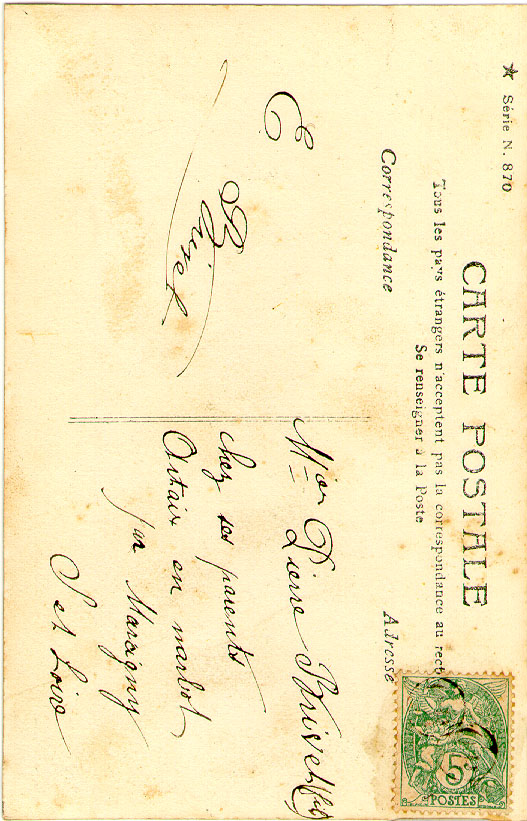 ★ Série N. 870
CARTE POSTALE
Tous les pays étrangers n'acceptent pas la correspondance au recto
Se renseigner à la Poste
Correspondance
Adresse
5
POSTES
E
Mon Pierre
chez ses parents
Artaix en
par Marcigny
S et Loire